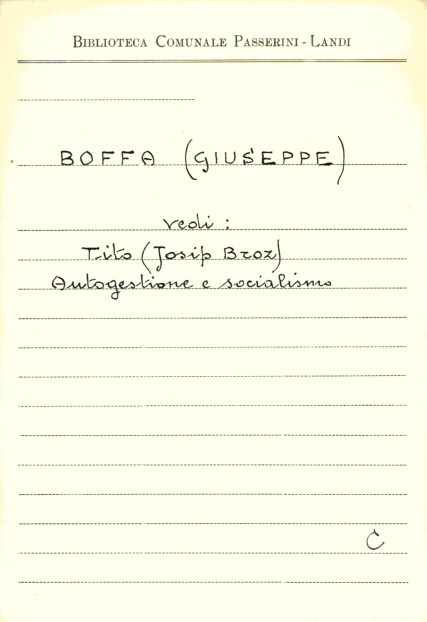 BIBLIOTECA COMUNALE PASSERINI - LANDI
BOFFA (GIUSEPPE)
vedi :
Tito (Josip Broz)
Autogestione e socialismo
C